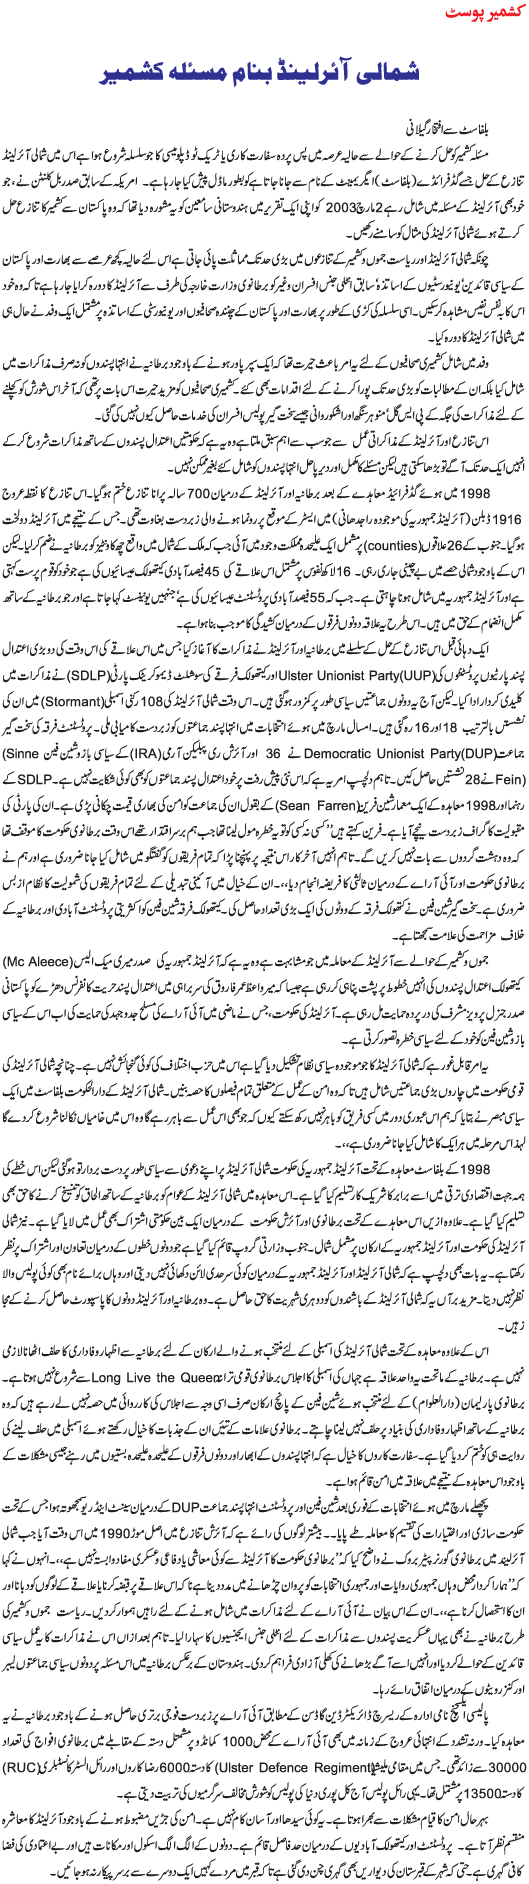 کشمیر پوسٹ
شمالی آئرلینڈ بنام مسئلہ کشمیر
بلفاسٹ سے افتخار گیلانی
مسئلہ کشمیر کو حل کرنے کے حوالے سے حالیہ عرصہ میں پس پردہ سفارت کاری یا ٹریک ٹو ڈپلومیسی کا جو سلسلہ شروع ہوا ہے اس میں شمالی آئرلینڈ
تنازع کے حل جسے گڈ فرائڈے (بلفاسٹ) ایگریمنٹ کے نام سے جانا جاتا ہے کو بطور ماڈل پیش کیا جا رہا ہے۔ امریکہ کے سابق صدر بل کلنٹن نے، جو
خود بھی آئرلینڈ کے مسئلہ میں شامل رہے 2 مارچ 2003 کو اپنی ایک تقریر میں ہندوستانی سامعین کو یہ مشورہ دیا تھا کہ وہ پاکستان سے کشمیر کا تنازع حل
کرتے ہوئے شمالی آئرلینڈ کی مثال کو سامنے رکھیں۔
چونکہ شمالی آئرلینڈ اور ریاست جموں و کشمیر کے تنازعوں میں بڑی حد تک مماثلت پائی جاتی ہے اس لئے حالیہ کچھ عرصے سے بھارت اور پاکستان
کے سیاسی قائدین' یونیورسٹیوں کے اساتذہ' سابق انٹلی جنس افسران وغیر کو برطانوی وزارت خارجہ کی طرف سے آئرلینڈ کا دورہ کرایا جا رہا ہے تاکہ وہ خود
اس کا بہ نفس نفیس مشاہدہ کرسکیں۔ اسی سلسلہ کی کڑی کے طور پر بھارت اور پاکستان کے چنندہ صحافیوں اور یونیورسٹی کے اساتذہ پر مشتمل ایک وفد نے حال ہی
میں شمالی آئرلینڈ کا دورہ کیا۔
وفد میں شامل کشمیری صحافیوں کے لئے یہ امر باعث حیرت تھا کہ ایک سپر پاور ہونے کے باوجود برطانیہ نے انتہا پسندوں کو نہ صرف مذاکرات میں
شامل کیا بلکہ ان کے مطالبات کو بڑی حد تک پورا کرنے کے لئے اقدامات بھی کئے۔ کشمیری صحافیوں کو مزید حیرت اس بات پر تھی کہ آخر اس شورش کو کچلنے
کے لئے مذاکرات کی جگہ کے پی ایس گل' منوہر سنگھ اور اشکور وانی جیسے سخت گیر پولیس افسران کی خدمات حاصل کیوں نہیں کی گئی۔
اس تنازع اور آئرلینڈ کے مذاکراتی عمل سے جو سب سے اہم سبق ملتا ہے وہ یہ ہے کہ حکومتیں اعتدال پسندوں کے ساتھ مذاکرات شروع کر کے
انہیں ایک حد تک آگے تو بڑھا سکتی ہیں لیکن مسئلے کا مکمل اور دیرپا حل انتہا پسندوں کو شامل کئے بغیر ممکن نہیں۔
1998 میں ہوئے گڈ فرائیڈ معاہدے کے بعد برطانیہ اور آئرلینڈ کے درمیان 700 سالہ پرانا تنازع ختم ہو گیا۔ اس تنازع کا نقطہ عروج
1916 ڈبلن (آئرلینڈ جمہوریہ کی موجودہ راجدھانی) میں ایسٹر کے موقع پر رونما ہونے والی زبردست بغاوت تھی۔ جس کے نتیجے میں آئرلینڈ دو لخت
ہو گیا۔ جنوب کے 26 علاقوں (counties) پر مشتمل ایک علیحدہ مملکت وجود میں آئی جب کہ ملک کے شمال میں واقع چھ کاونٹیز کو برطانیہ نے ضم کر لیا۔ لیکن
اس کے باوجود شمالی حصے میں بے چینی جاری رہی۔ 16 لاکھ نفوس پر مشتمل اس علاقے کی 45 فیصد آبادی کیتھولک عیسائیوں کی ہے جو خود کو قوم پرست کہتی
ہے اور آئرلینڈ جمہوریہ میں شامل ہونا چاہتی ہے۔ جب کہ 55 فیصد آبادی پروٹسٹنٹ عیسائیوں کی ہے' جنہیں یونینسٹ کہا جاتا ہے اور جو برطانیہ کے ساتھ
مکمل انضمام کے حق میں ہیں۔ اس طرح یہ علاقہ دونوں فرقوں کے درمیان کشیدگی کا موجب بنا ہوا ہے۔
ایک دہائی قبل اس تنازع کے حل کے سلسلے میں برطانیہ اور آئرلینڈ نے مذاکرات کا آغاز کیا جس میں اس علاقے کی اس وقت کی دو بڑی اعتدال
پسند پارٹیوں پروٹسٹنٹوں کی Ulster Unionist Party(UUP) اور کیتھولک فرقے کی سوشلسٹ ڈیموکریٹک پارٹی (SDLP) نے مذاکرات میں
کلیدی کردار ادا کیا۔ لیکن آج یہ دونوں جماعتیں سیاسی طور پر کمزور ہو گئی ہیں۔ اس وقت شمالی آئرلینڈ کی 108 رکنی اسمبلی (Stormant) میں ان کی
نشستیں بالترتیب 18 اور 16 رہ گئی ہیں۔ امسال مارچ میں ہوئے انتخابات میں انتہا پسند جماعتوں کو زبردست کامیابی ملی۔ پروٹسٹنٹ فرقہ کی سخت گیر
جماعت Democratic Unionist Party(DUP) نے 36 اور آئرش ری پبلیکن آرمی (IRA) کے سیاسی بازو شین فین (Sinne
Fein) نے 28 نشستیں حاصل کیں۔ تاہم دلچسپ امر یہ ہے کہ اس نئی پیش رفت پر خود اعتدال پسند جماعتوں کو بھی کوئی شکایت نہیں ہے۔ SDLP کے
رہنما اور 1998 معاہدہ کے ایک معمار شین فرین (Sean Farren) کے بقول ان کی جماعت کو امن کی بھاری قیمت چکانی پڑی ہے۔ ان کی پارٹی کی
مقبولیت کا گراف زبردست نیچے آیا ہے۔ فرین کہتے ہیں ''کسی نہ کسی کو تو یہ خطرہ مول لینا تھا جب ہم برسراقتدار تھے اس وقت برطانوی حکومت کا موقف تھا
کہ وہ دہشت گردوں سے بات نہیں کریں گے۔ تاہم انہیں آخر کار اس نتیجہ پر پہنچنا پڑا کہ تمام فریقوں کو گفتگو میں شامل کیا جانا ضروری ہے اور ہم نے
برطانوی حکومت اور آئی آر اے کے درمیان ثالثی کا فریضہ انجام دیا،،۔ ان کے خیال میں آئینی تبدیلی کے لئے تمام فریقوں کی شمولیت کا نظام از بس
ضروری ہے۔ سخت گیر شین فین نے کتھولک فرقہ کے ووٹوں کی ایک بڑی تعداد حاصل کی۔ کیتھولک فرقہ شین فین کو اکثریتی پروٹسٹنٹ آبادی اور برطانیہ کے
خلاف مزاحمت کی علامت سمجھتا ہے۔
جموں و کشمیر کے حوالے سے آئرلینڈ کے معاملہ میں جو مشابہت ہے وہ یہ ہے کہ آئرلینڈ جمہوریہ کی صدر میری میک الیس (Mc Aleece)
کیتھولک اعتدال پسندوں کی انہیں خطوط پر پشت پناہی کر رہی ہے جیسا کہ میر واعظ عمر فاروق کی سربراہی میں اعتدال پسند حریت کانفرنس دھڑے کو پاکستانی
صدر جنرل پرویز مشرف کی درپردہ حمایت مل رہی ہے۔ آئرلینڈ کی حکومت، جس نے ماضی میں آئی آر اے کی مسلح جدوجہد کی حمایت کی اب اس کے سیاسی
بازو شین فین کو خود کے لئے سیاسی خطرہ تصور کرتی ہے۔
یہ امر قابل غور ہے کہ شمالی آئرلینڈ کا جو موجودہ سیاسی نظام تشکیل دیا گیا ہے اس میں حزب اختلاف کی کوئی گنجائش نہیں ہے۔ چنانچہ شمالی آئرلینڈ کی
قومی حکومت میں چاروں بڑی جماعتیں شامل ہیں تاکہ وہ امن کے عمل کے متعلق تمام فیصلوں کا حصہ بنیں۔ شمالی آئرلینڈ کے دارالحکومت بلفاسٹ میں ایک
سیاسی مبصر نے بتایا کہ ہم اس عبوری دور میں کسی فریق کو باہر نہیں رکھ سکتے کیوں کہ جو بھی اس عمل سے باہر رہے گا وہ اس میں خامیاں نکالنا شروع کر دے گا
لہذا اس مرحلہ میں ہر ایک کا شامل کیا جانا ضروری ہے،،۔
1998 کے بلفاسٹ معاہدہ کے تحت آئرلینڈ جمہوریہ کی حکومت شمالی آئرلینڈ پر اپنے دعوی سے سیاسی طور پر دست بردار تو ہو گئی لیکن اس خطے کی
ہمہ جہت اقتصادی ترقی میں اسے برابر کا شریک کار تسلیم کیا گیا ہے۔ اس معاہدہ میں شمالی آئرلینڈ کے عوام کو برطانیہ کے ساتھ الحاق کو تنسیخ کرنے کا حق بھی
تسلیم کیا گیا ہے۔ علاوہ ازیں اس معاہدے کے تحت برطانوی اور آئرش حکومت کے درمیان ایک بین حکومتی اشتراک بھی عمل میں لایا گیا ہے۔ نیز شمالی
آئرلینڈ کی حکومت اور آئرلینڈ جمہوریہ کے ارکان پر مشمل شمال۔ جنوب وزارتی گروپ قائم کیا گیا ہے جو دونوں خطوں کے درمیان تعاون اور اشتراک پر نظر
رکھتا ہے۔ یہ بات بھی دلچسپ ہے کہ شمالی آئرلینڈ اور آئرلینڈ جمہوریہ کے درمیان کوئی سرحدی لائن دکھائی نہیں دیتی اور وہاں برائے نام بھی کوئی پولیس والا
نظر نہیں دیتا۔ مزید برآں یہ کہ شمالی آئرلینڈ کے باشندوں کو دوہری شہریت کا حق حاصل ہے۔ وہ برطانیہ اور آئرلینڈ دونوں کا پاسپورٹ حاصل کرنے کے مجا
ز ہیں۔
اس کے علاوہ معاہدہ کے تحت شمالی آئرلینڈ کی اسمبلی کے لئے منتخب ہونے والے ارکان کے لئے برطانیہ سے اظہار وفاداری کا حلف اٹھانا لازمی
نہیں ہے۔ برطانیہ کے ماتحت یہ واحد علاقہ ہے جہاں کی اسمبلی کا اجلاس برطانوی قومی ترانہ Long Live the Queen سے شروع نہیں ہوتا ہے۔
برطانوی پارلیمان (دارالعلوام) کے لئے منتخب ہوئے شین فین کے پانچ ارکان صرف اسی وجہ سے اجلاس کی کارروائی میں حصہ نہیں لے رہے ہیں کہ وہ
برطانیہ کے ساتھ اظہار وفاداری کی بنیاد پر حلف نہیں لینا چاہتے۔ برطانوی علامات کے تئیں ان کے جذبات کا خیال رکھتے ہوئے اسمبلی میں حلف لینے کی
روایت ہی کو ختم کر دیا گیا ہے۔ سفارت کاروں کا خیال ہے کہ انتہا پسندوں کے ابھار اور دونوں فرقوں کے علیحدہ علیحدہ بستیوں میں رہنے جیسی مشکلات کے
باوجود اس معاہدہ کے نتیجے میں علاقہ میں امن قائم ہوا ہے۔
پچھلے مارچ میں ہوئے انتخابات کے فوری بعد شین فین اور پروٹسٹنٹ انتہا پسند جماعت DUP کے درمیان سینٹ اینڈریو سمجھوتہ ہوا جس کے تحت
حکومت سازی اور اختیارات کی تقسیم کا معاملہ طے پایا۔۔ بیشتر لوگوں کی رائے ہے کہ آئرش تنازع میں اصل موڑ 1990 میں اس وقت آیا جب شمالی
آئرلیند میں برطانوی گورنر پیٹر بروک نے واضح کیا کہ ''برطانوی حکومت کا آئرلینڈ سے کوئی معاشی یا دفاعی و عسکری مفاد وابستہ نہیں ہے،،۔ انہوں نے کہا
کہ ''ہمارا کردار محض وہاں جمہوری روایات اور جمہوری انتخابات کو پروان چڑھانے میں مدد دینا ہے نا کہ اس علاقے پر قبضہ کرنا یا علاقے کے لوگوں کو دبانا اور
ان کا استحصال کرنا ہے،،۔ ان کے اس بیان نے آئی آر اے کے لئے مذاکرات میں شامل ہونے کے لئے راہیں ہموار کر دیں۔ ریاست جموں و کشمیر کی
طرح برطانیہ نے بھی یہاں عسکریت پسندوں سے مذاکرات کے لئے انٹلی جنس ایجنسیوں کا سہارا لیا۔ تاہم بعد ازاں اس نے مذاکرات کا یہ عمل سیاسی
قائدین کے حوالے کر دیا اور انہیں اسے آگے بڑھانے کی کھلی آزادی فراہم کر دی۔ ہندوستان کے برعکس برطانیہ میں اس مسئلہ پر دونوں سیاسی جماعتوں لیبر
اور کنزرویٹوں کے درمیان اتفاق رائے رہا۔
پالیسی ایکسچینج نامی ادارہ کے ریسرچ ڈائریکٹر ڈین گاڈسن کے مطابق آئی آر اے پر زبردست فوجی برتری حاصل ہونے کے باوجود برطانیہ نے یہ
معاہدہ کیا۔ ورنہ تشدد کے انتہائی عروج کے زمانہ میں بھی آئی آر اے کے محض 1000 کمانڈو پر مشتمل دستہ کے مقابلے میں برطانوی افواج کی تعداد
30000 سے زائد تھی۔ جس میں مقامی ملیشیا (Ulster Defence Regiment) کا دستہ 6000 رضا کاروں اور رائل السٹر کانسٹبلری (RUC)
کا دستہ 13500 پر مشتمل تھا۔ یہی رائل پولیس آج کل پوری دنیا کی پولیس کو شورش مخالف سرگرمیوں کی تربیت دیتی ہے۔
بہرحال امن کا قیام مشکلات سے بھرا ہوتا ہے۔ یہ کوئی سیدھا اور آسان کام نہیں ہے۔ امن کی جڑیں مضبوط ہونے کے باوجود آئرلینڈ کا معاشرہ
منقسم نظر آتا ہے۔ پروٹسٹنٹ اور کیتھولک آبادیوں کے درمیان حد فاصل قائم ہے۔ دونوں کے الگ الگ اسکول اور مکانات ہیں اور بے اعتمادی کی فضا
کافی گہری ہے۔ حتی کہ شہر کے قبرستان کی دیواریں بھی گہری چن دی گئی ہے تاکہ قبر میں مردے کہیں ایک دوسرے سے برسرپیکار نہ ہو جائیں۔